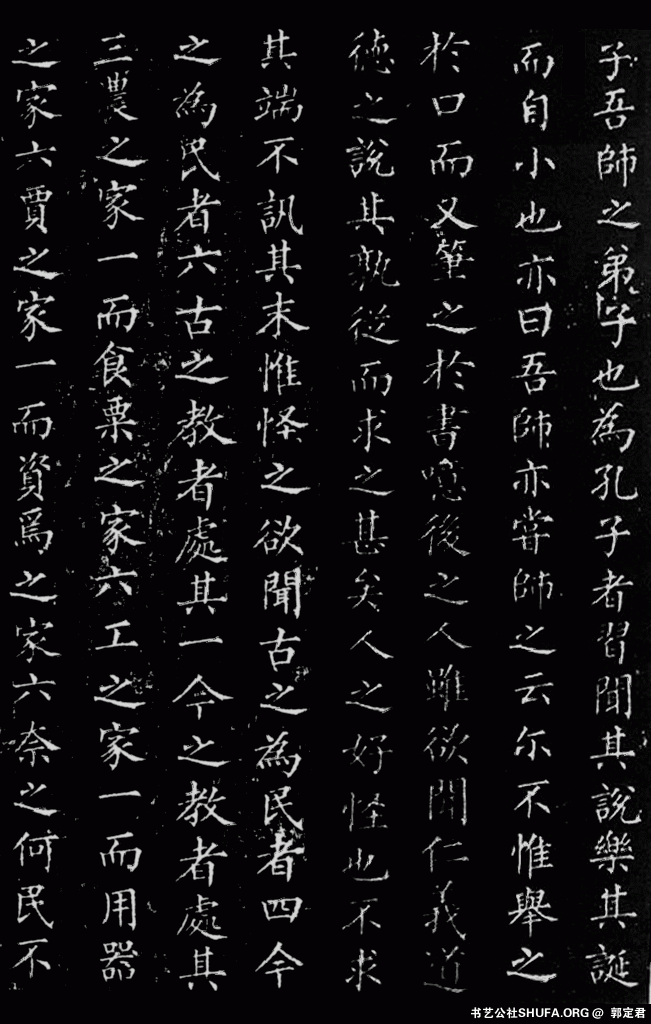 子吾師之弟子也為孔子者習聞其說樂其誕
而自小也亦曰吾師亦嘗師之云尔不惟舉之
於口而又筆之於書噫後之人雖欲聞仁義道
德之說其孰從而求之甚矣人之好怪也不求
其端不訊其末惟怪之欲聞古之為民者四今
之為民者六古之教者處其一今之教者處其
三農之家一而食粟之家六工之家一而用器
之家六賈之家一而資焉之家六奈之何民不
书艺公社SHUFA.ORG @ 郭定君